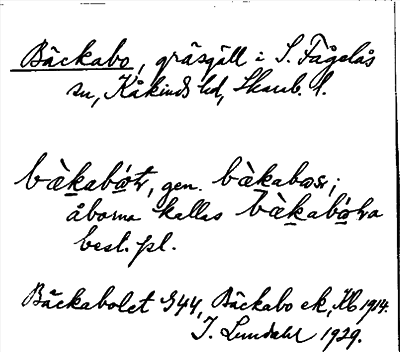 Bäckabo, gräsgäll i S. Fågelås
sn, Kåkinds hd, Skarab. l.
bàkabót, gen. bàkabos;
åborna kallas bàkabóra
best. pl.
Bäckabolet 944, Bäckabo ek, 1914.
J. Lundahl 1929.